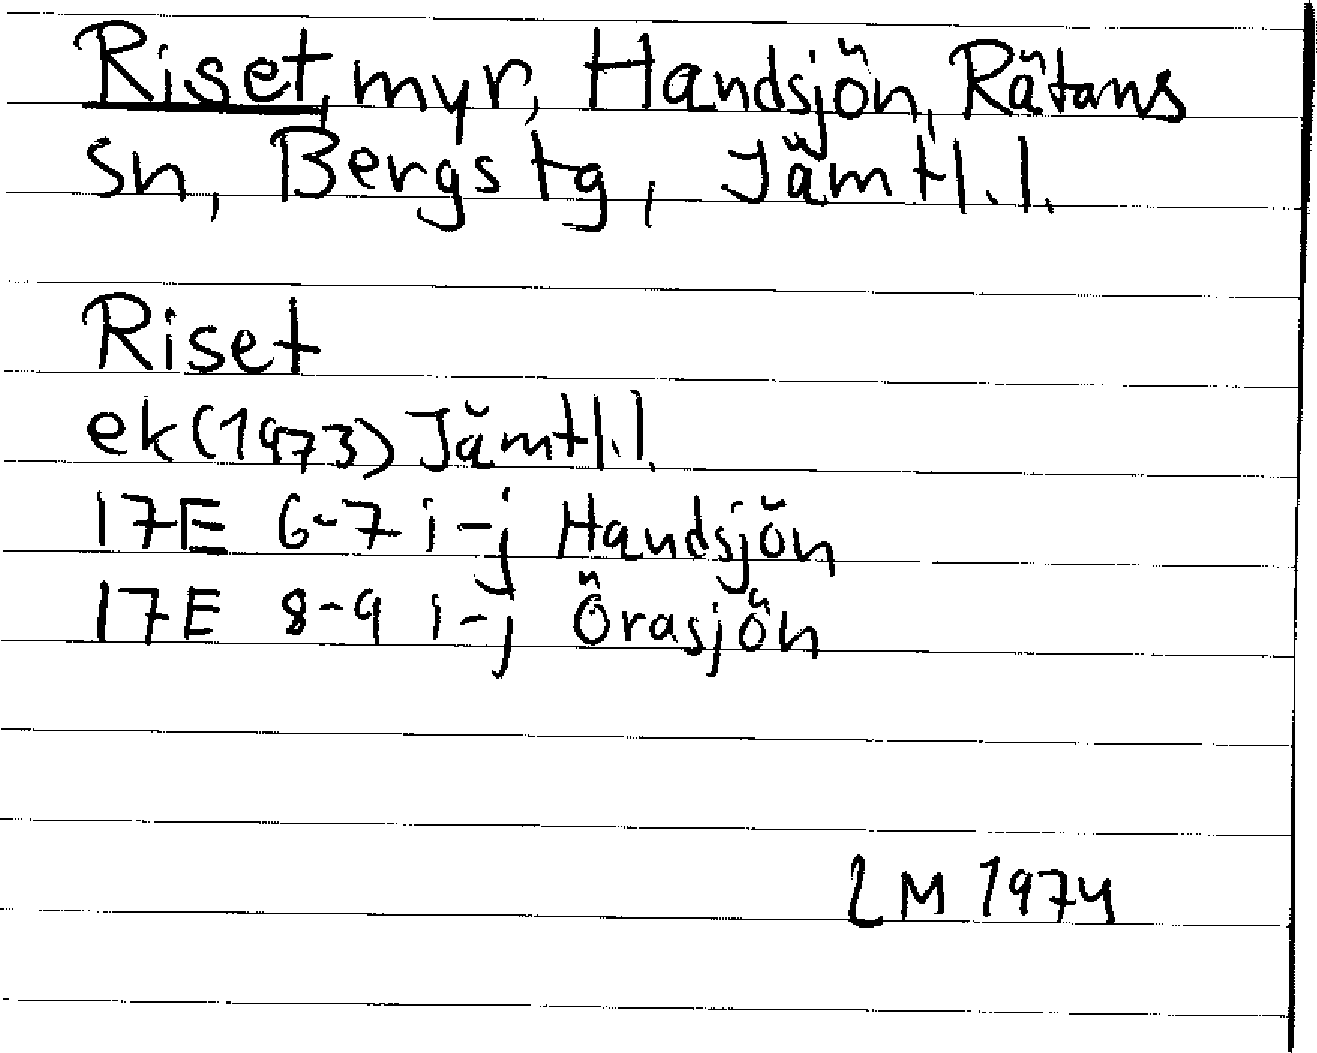 Riset, myr, Handsjön, Rätans
Sn, Bergs tg, Jämtl.l.
Riset
ek (1973) Jämtl.l.
17E 6-7 i-j Handsjön
17E 8-9 i-j Örasjön
LM 1974